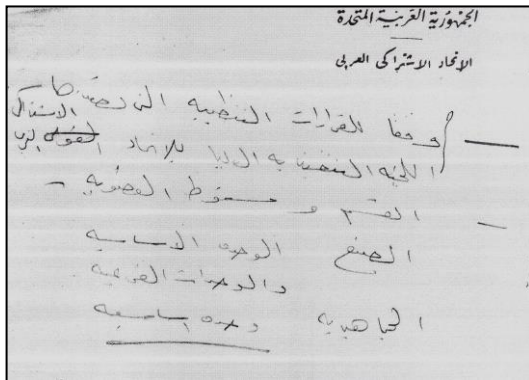 الجمهورية العربية المتحدة
الاتحاد الاشتراكى العربى
وفقا للقرارات التنظيميه التى
اللجنه التنفيذيه العليا للاتحاد الاشتراكى
القسم و شروط العضويه -
المصنع الوحده الاساسيه
والوحدات الفرعيه
الجماهيريه وحده اساسيه